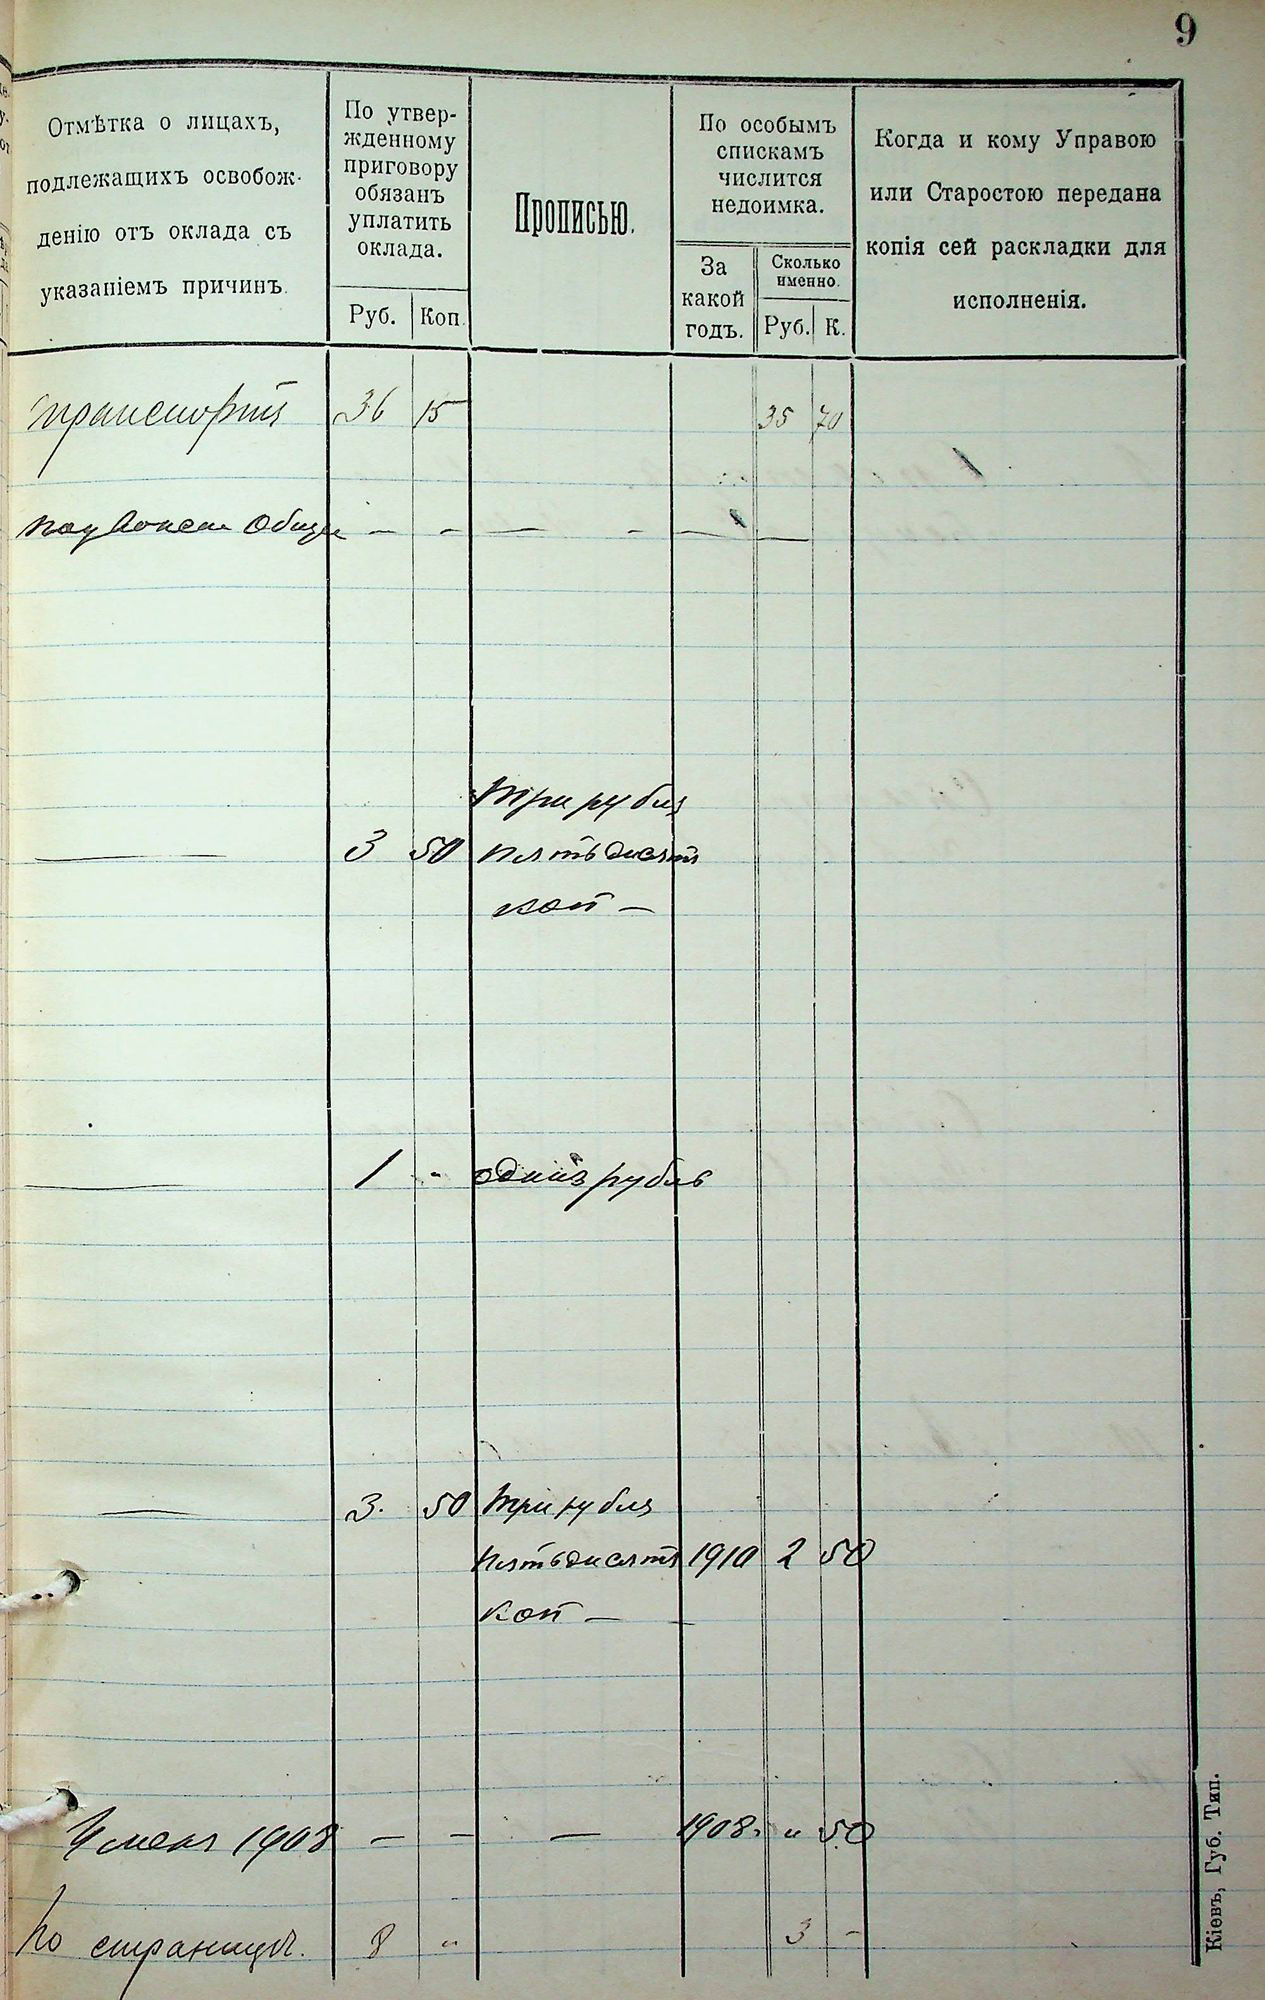 9
Отмѣтка о лицахъ,
подлежащихъ освобож-
денію отъ оклада съ
указаніемъ причинъ.
По утвер-
жденному
приговору
обязанъ
уплатить
оклада.
Руб. Коп.
Прописью.
По особымъ
спискамъ
числится
недоимка.
За
какой
годъ.
Сколько
именно.
Руб. К.
Когда и кому Управою
или Старостою передана
копія сей раскладки для
исполненія.
Транспортъ 36 15 35 70
— — — — — —
Три рубля
— 3 50 пятьдесятъ
коп —
— 1 - одинъ рубль
— 3. 50 Три рубля
пятьдесятъ 1910 2 50
коп —
1908 — — — 1908. " 50
По страницѣ. 8 " 3 -
Кіевъ, Губ. Тип.